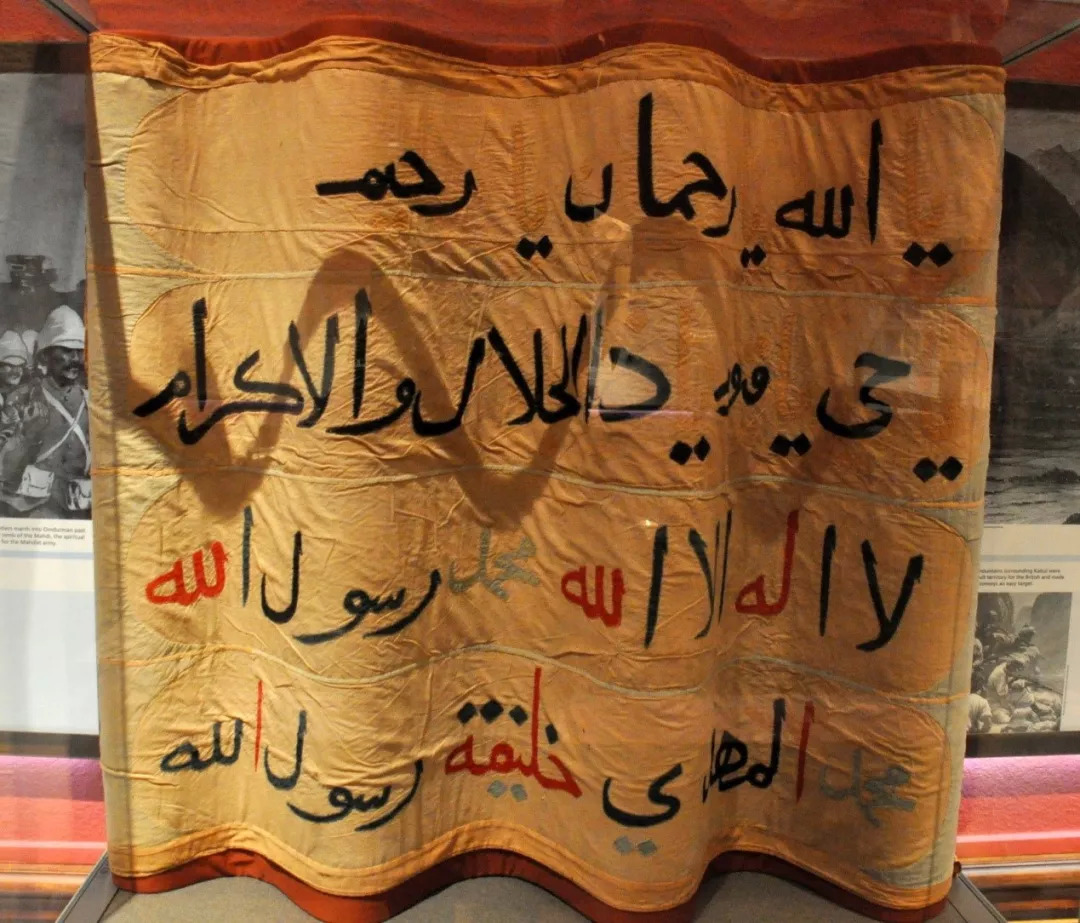 يا الله يا رحمان يا رحيم
يا حي يا قيوم يا ذا الجلال والاكرام
لا اله الا الله محمد رسول الله
محمد المهدي خليفة رسول الله
march into Omdurman past
tomb of the Mahdi, the spiritual
for the Mahdist army.
mountains surrounding Kabul were
territory for the British and made
convoys an easy target.